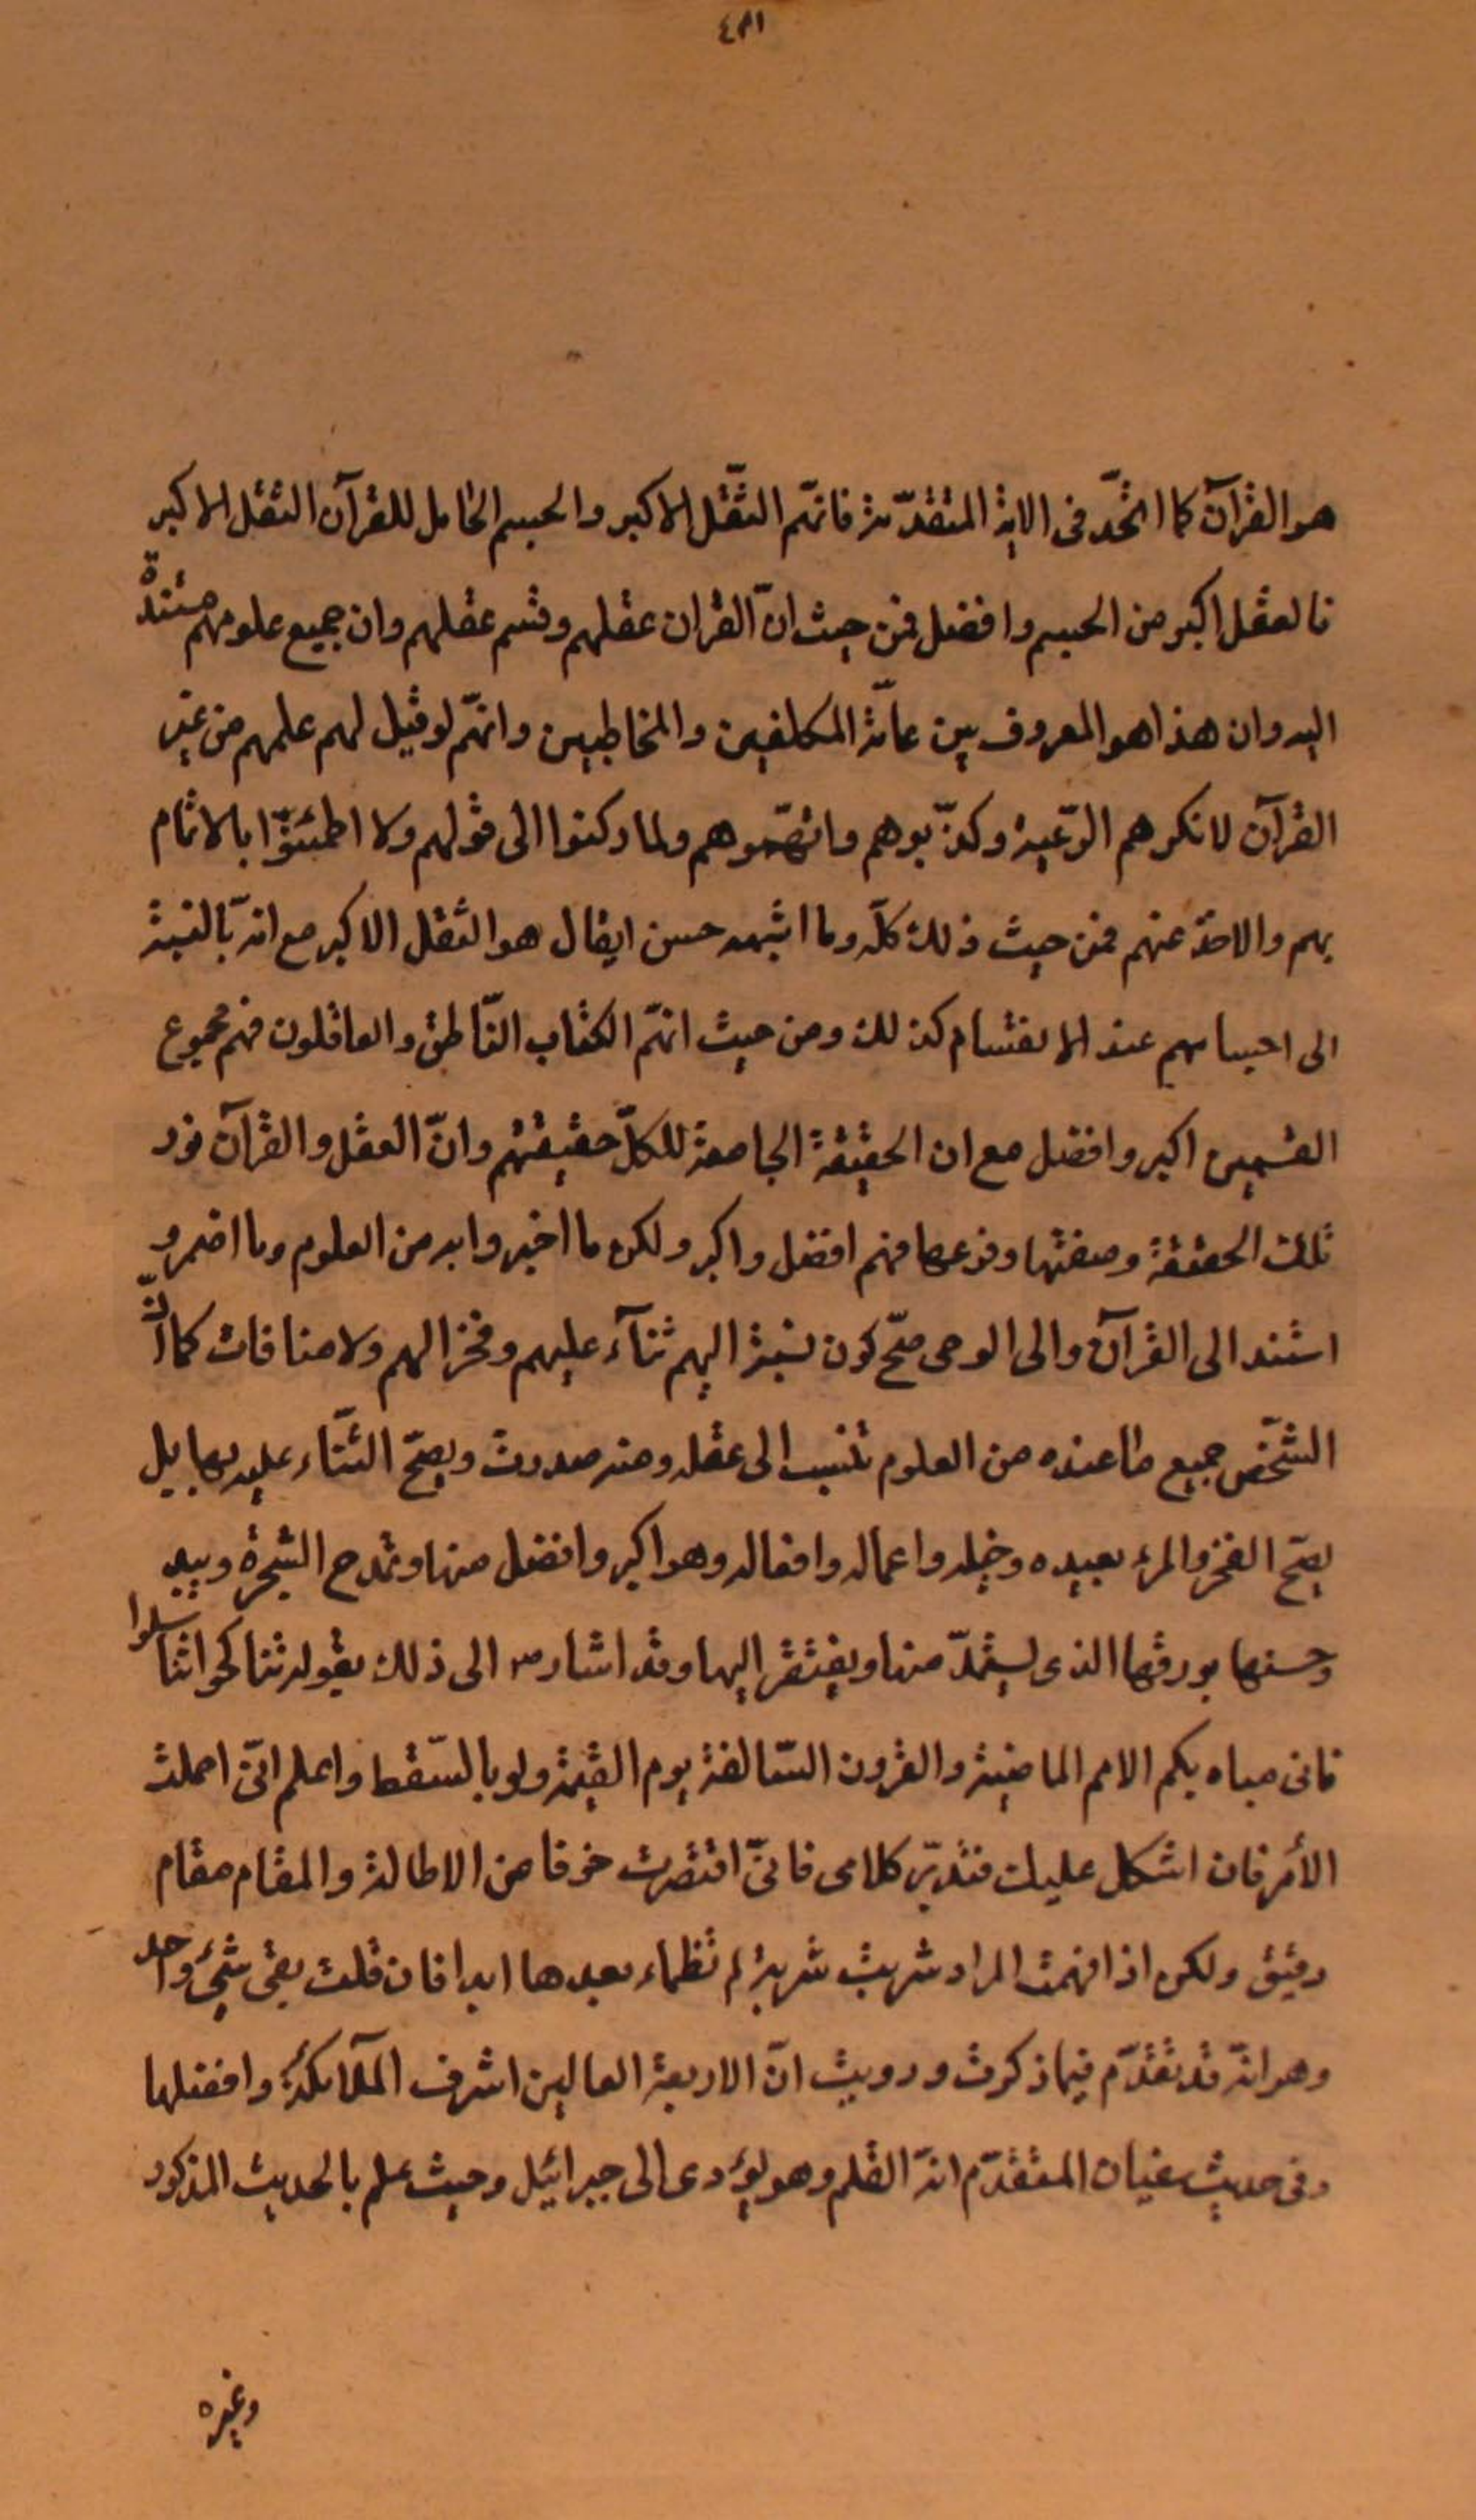 ٤٣١
هو القرآن كما اتّحد فى الاية المتقدّمة فانهّم الثّقل الاكبر والجسم الحامل للقرآن الثقل الاكبر
فالعقل اكبر من الجسم وافضل فمن حيث انّ القران عقلهم وقسم عقلهم وان جميع علومهم مستندة
اليه وان هذا هو المعروف بين عامّة المكلفين والمخاطبين وانهّم لو قيل لهم علمهم من غير
القرآن لانكرهم الرّعية وكذّبوهم واتّهموهم ولما ركنوا الى قولهم ولا اطمئنوّا بالايتمام
بهم والاخذ عنهم فمن حيث ذلك كلّه وما اشبهه حسن ان يقال هو الثقل الاكبر مع انّه بالنسبة
الى اجسامهم عند الانقسام كذلك ومن حيث انهّم الكتاب النّاطق والعاقلون فهم مجموع
القسمين اكبر وافضل مع ان الحقيقة الجامعة للكلّ حقيقتهم وانّ العقل والقرآن نور
تلك الحقيقة وصفتها وفرعها فهم افضل واكبر ولكن ما اخبروا به من العلوم وما اضمرو
استند الى القرآن والى الوحى صحّ كون نسبته اليهم ثنآء عليهم وفخرا لهم ولا منافات كما انّ
الشّخص جميع ما عنده من العلوم تنسب الى عقله ومنه صدرت ويصحّ الثّناء عليه بها بل
يصحّ الفخر والمرء بعبيده وخيله واعماله وافعاله وهو اكبر وافضل منها وتمدح الشجرة وبين
حسنها بورقها الذى يستمدّ منها ويفتقر اليها وقد اشار ص الى ذلك بقوله تناكحوا تناسلوا
فانى مباه بكم الامم الماضية والقرون السّالفة يوم القيمة ولو بالسّقط واعلم انّى اجملت
الأمر فان اشكل عليك فتدبّر كلامى فانّى اقتصرت خوفا من الاطالة والمقام مقام
دقيق ولكن اذا فهمت المراد شربت شربة لم تظماء بعدها ابدا فان قلت بقى شئ واحد
وهو انّه قد تقدّم فيما ذكرت ورويت انّ الاربعة العالين اشرف الملآئكة وافضلها
وفى حديث سفيان المتقدّم انّه القلم وهو يؤدى الى جبرائيل وحيث علم بالحديث المذكور
وغيره